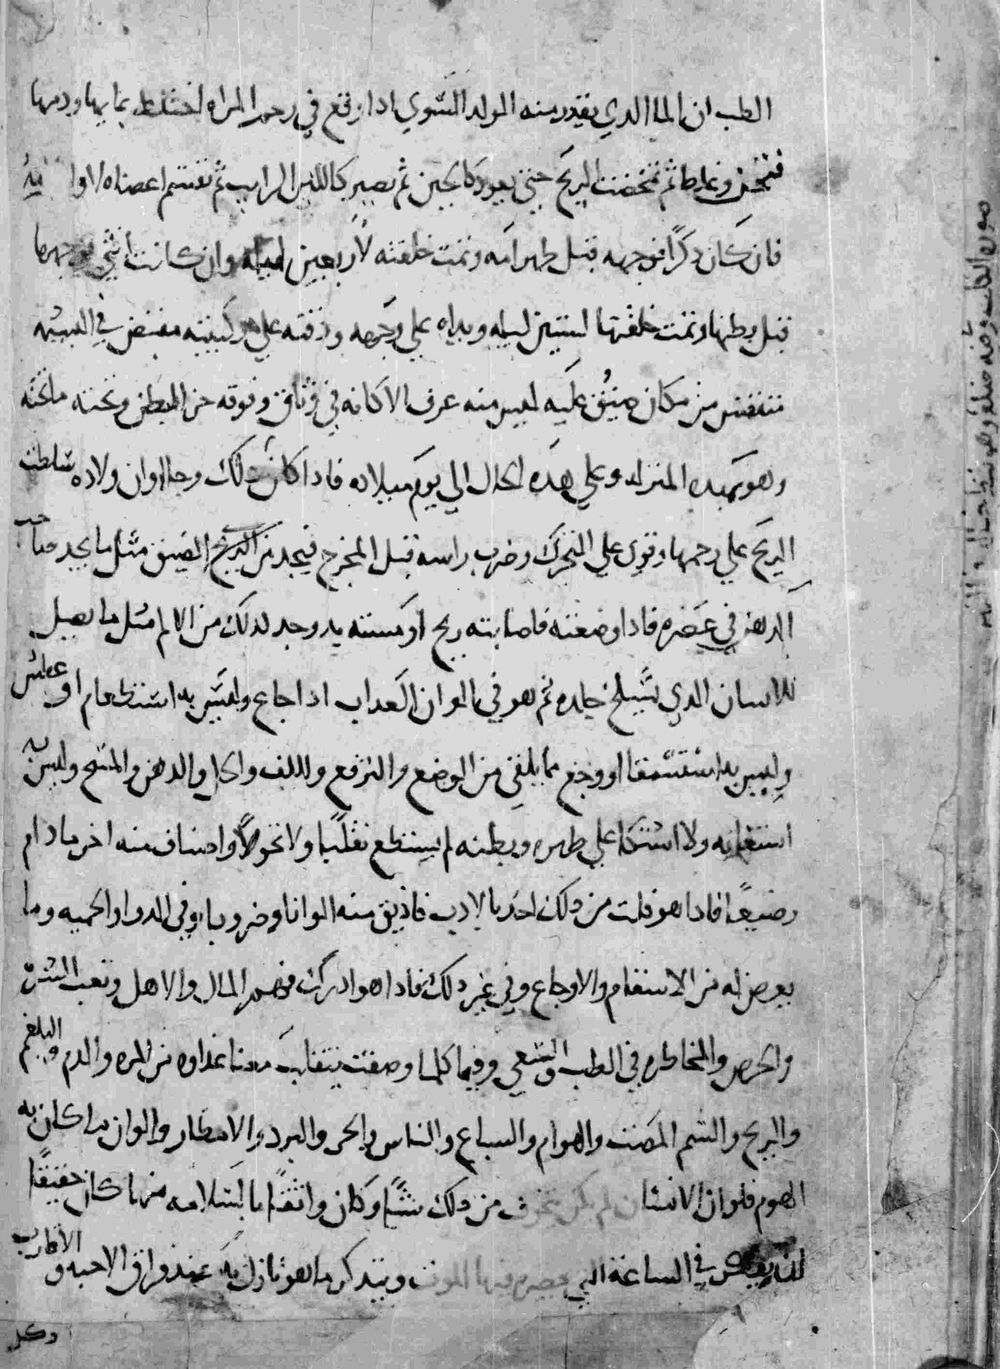 الطب ان الما الدي يقدر منه المولد السوي ادا وقع في رحم المراه اختلط بمايها ودمها
فتخن وغلط ثم تمخضت الريح حتي يعود كالجبن ثم يصير كاللبن الرايب ثم تقسم اعضاه لاوا
فان كان دكرا فوجهه قبل ظهر امه وتمت خلقته لاربعين ليله وان كانت انثي فوجهها
قبل بطنها وتمت خلقتها لستين ليله ويداه علي وجهه ودقنه علي ركبتيه مقبض في المشيمه
متنفس من مكان ضيق عليه ليس منه عرف الا كانه في وثاق وفوقه حر البطن وتحته ماتحته
وهو بهده المنزله وعلي هده الحال الي يوم ميلاده فادا كان دلك وجا اوان ولاده سلطت
الريح علي رحمها وقوي علي التحرك وضرب راسه قبل المخرج فيجد من الريح الضيق مثل ما يجد صاحب
الدهن في عصره فادا وضعته فاصابته ريح او مسته يد وجد لدلك من الالم مثل ما يصل
للانسان الدي يسلخ جلده ثم هو في الوان العداب ادا جاع وليس به استطعام او عطش
وليس به استسقا او وجع مما يلقي من الوضع والرفع واللف والحل والدهن والمسح وليس به
استغاثه ولا اشتكا علي ظهره وبطنه لم يستطع تقلبا ولا تحولا واصناف منه اخر مادام
رضيعا فادا هو فلت من دلك اخد بالادب فاديق منه الوانا وضروبا وفي الدوا والحميه وما
يعرض له من الاسقام والاوجاع وفي غير دلك فادا هو ادرك فهم المال والاهل وتعب الشره
والحرص والمخاطره في الطلب والسعي وفيما كلما وصفت يتقلب معنا اعداوه من المره والدم والبلغم
والريح والسم المصت والهوام والسباع والناس والحر والبرد والامطار والوان ما كان به
الهوم فلو ان الانسان لم يكن يتخوف من دلك شيا وكان واثقا بالسلامه منها كان حقيقا
في الساعة التي يحضره فيها الموت ويتدكر ما هو نازل به عند فراق الاحبه والاقارب
وكل